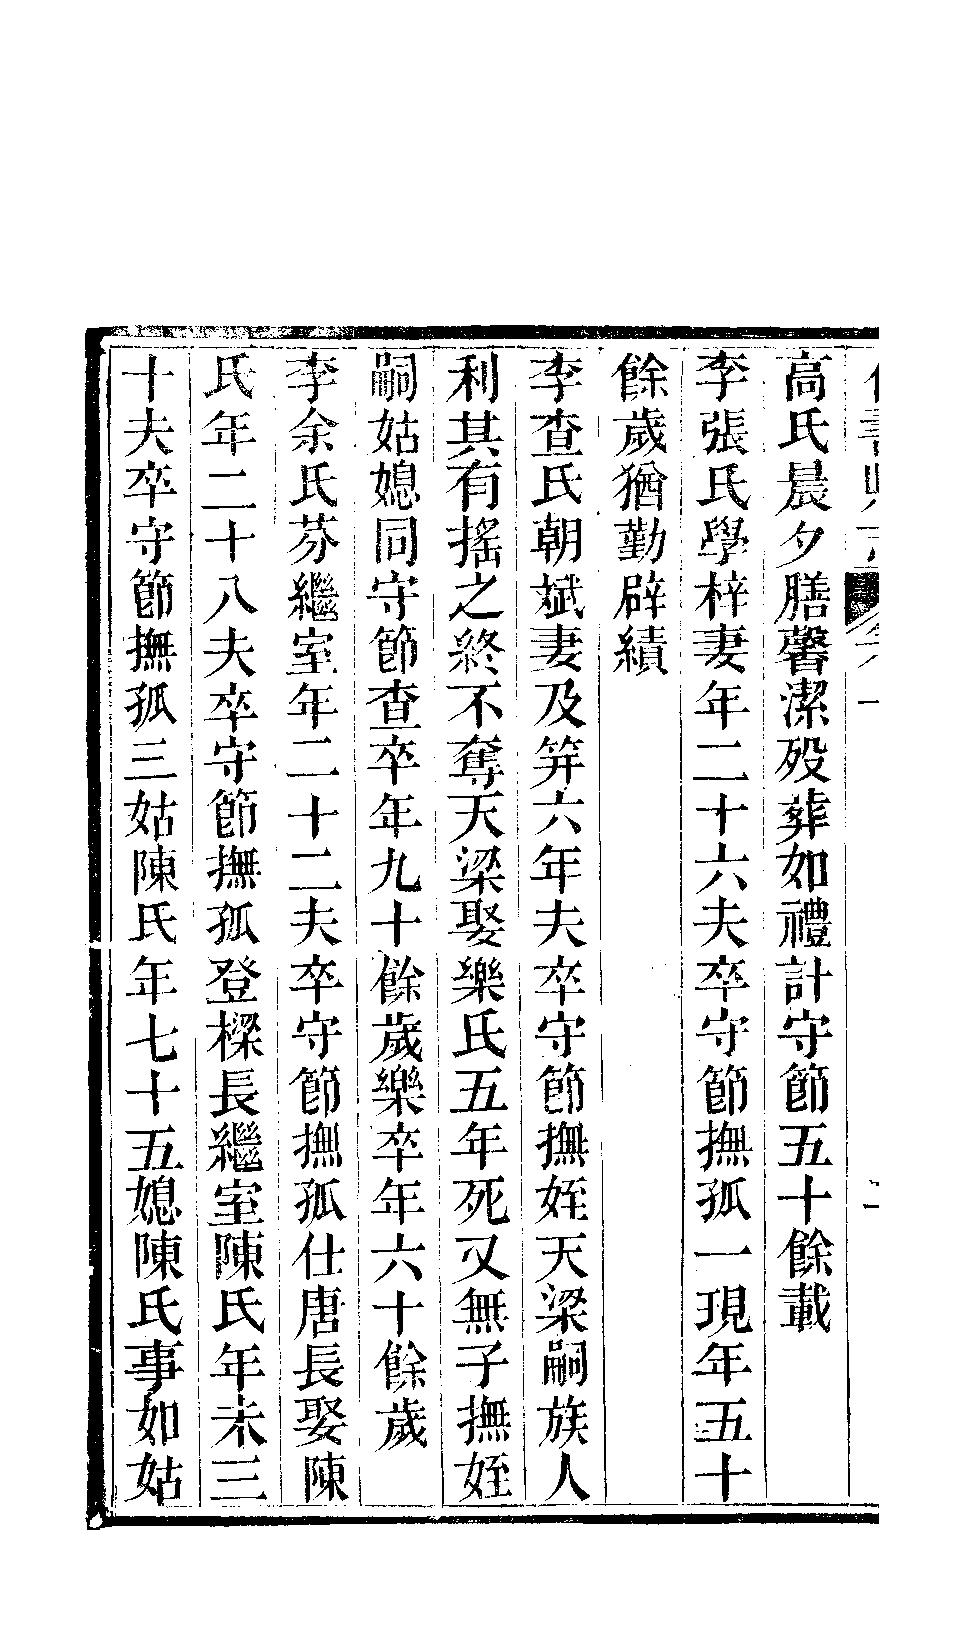 高氏晨夕膳馨潔歿葬如禮計守節五十餘載
李張氏學梓妻年二十六夫卒守節撫孤一現年五十
餘歲猶勤辟績
李查氏朝斌妻及笄六年夫卒守節撫姪天梁嗣族人
利其有搖之終不奪天梁娶樂氏五年死又無子撫姪
嗣姑媳同守節查卒年九十餘歲樂卒年六十餘歲
李余氏芬繼室年二十二夫卒守節撫孤仕唐長娶陳
氏年二十八夫卒守節撫孤登樑長繼室陳氏年未三
十夫卒守節撫孤三姑陳氏年七十五媳陳氏事如姑